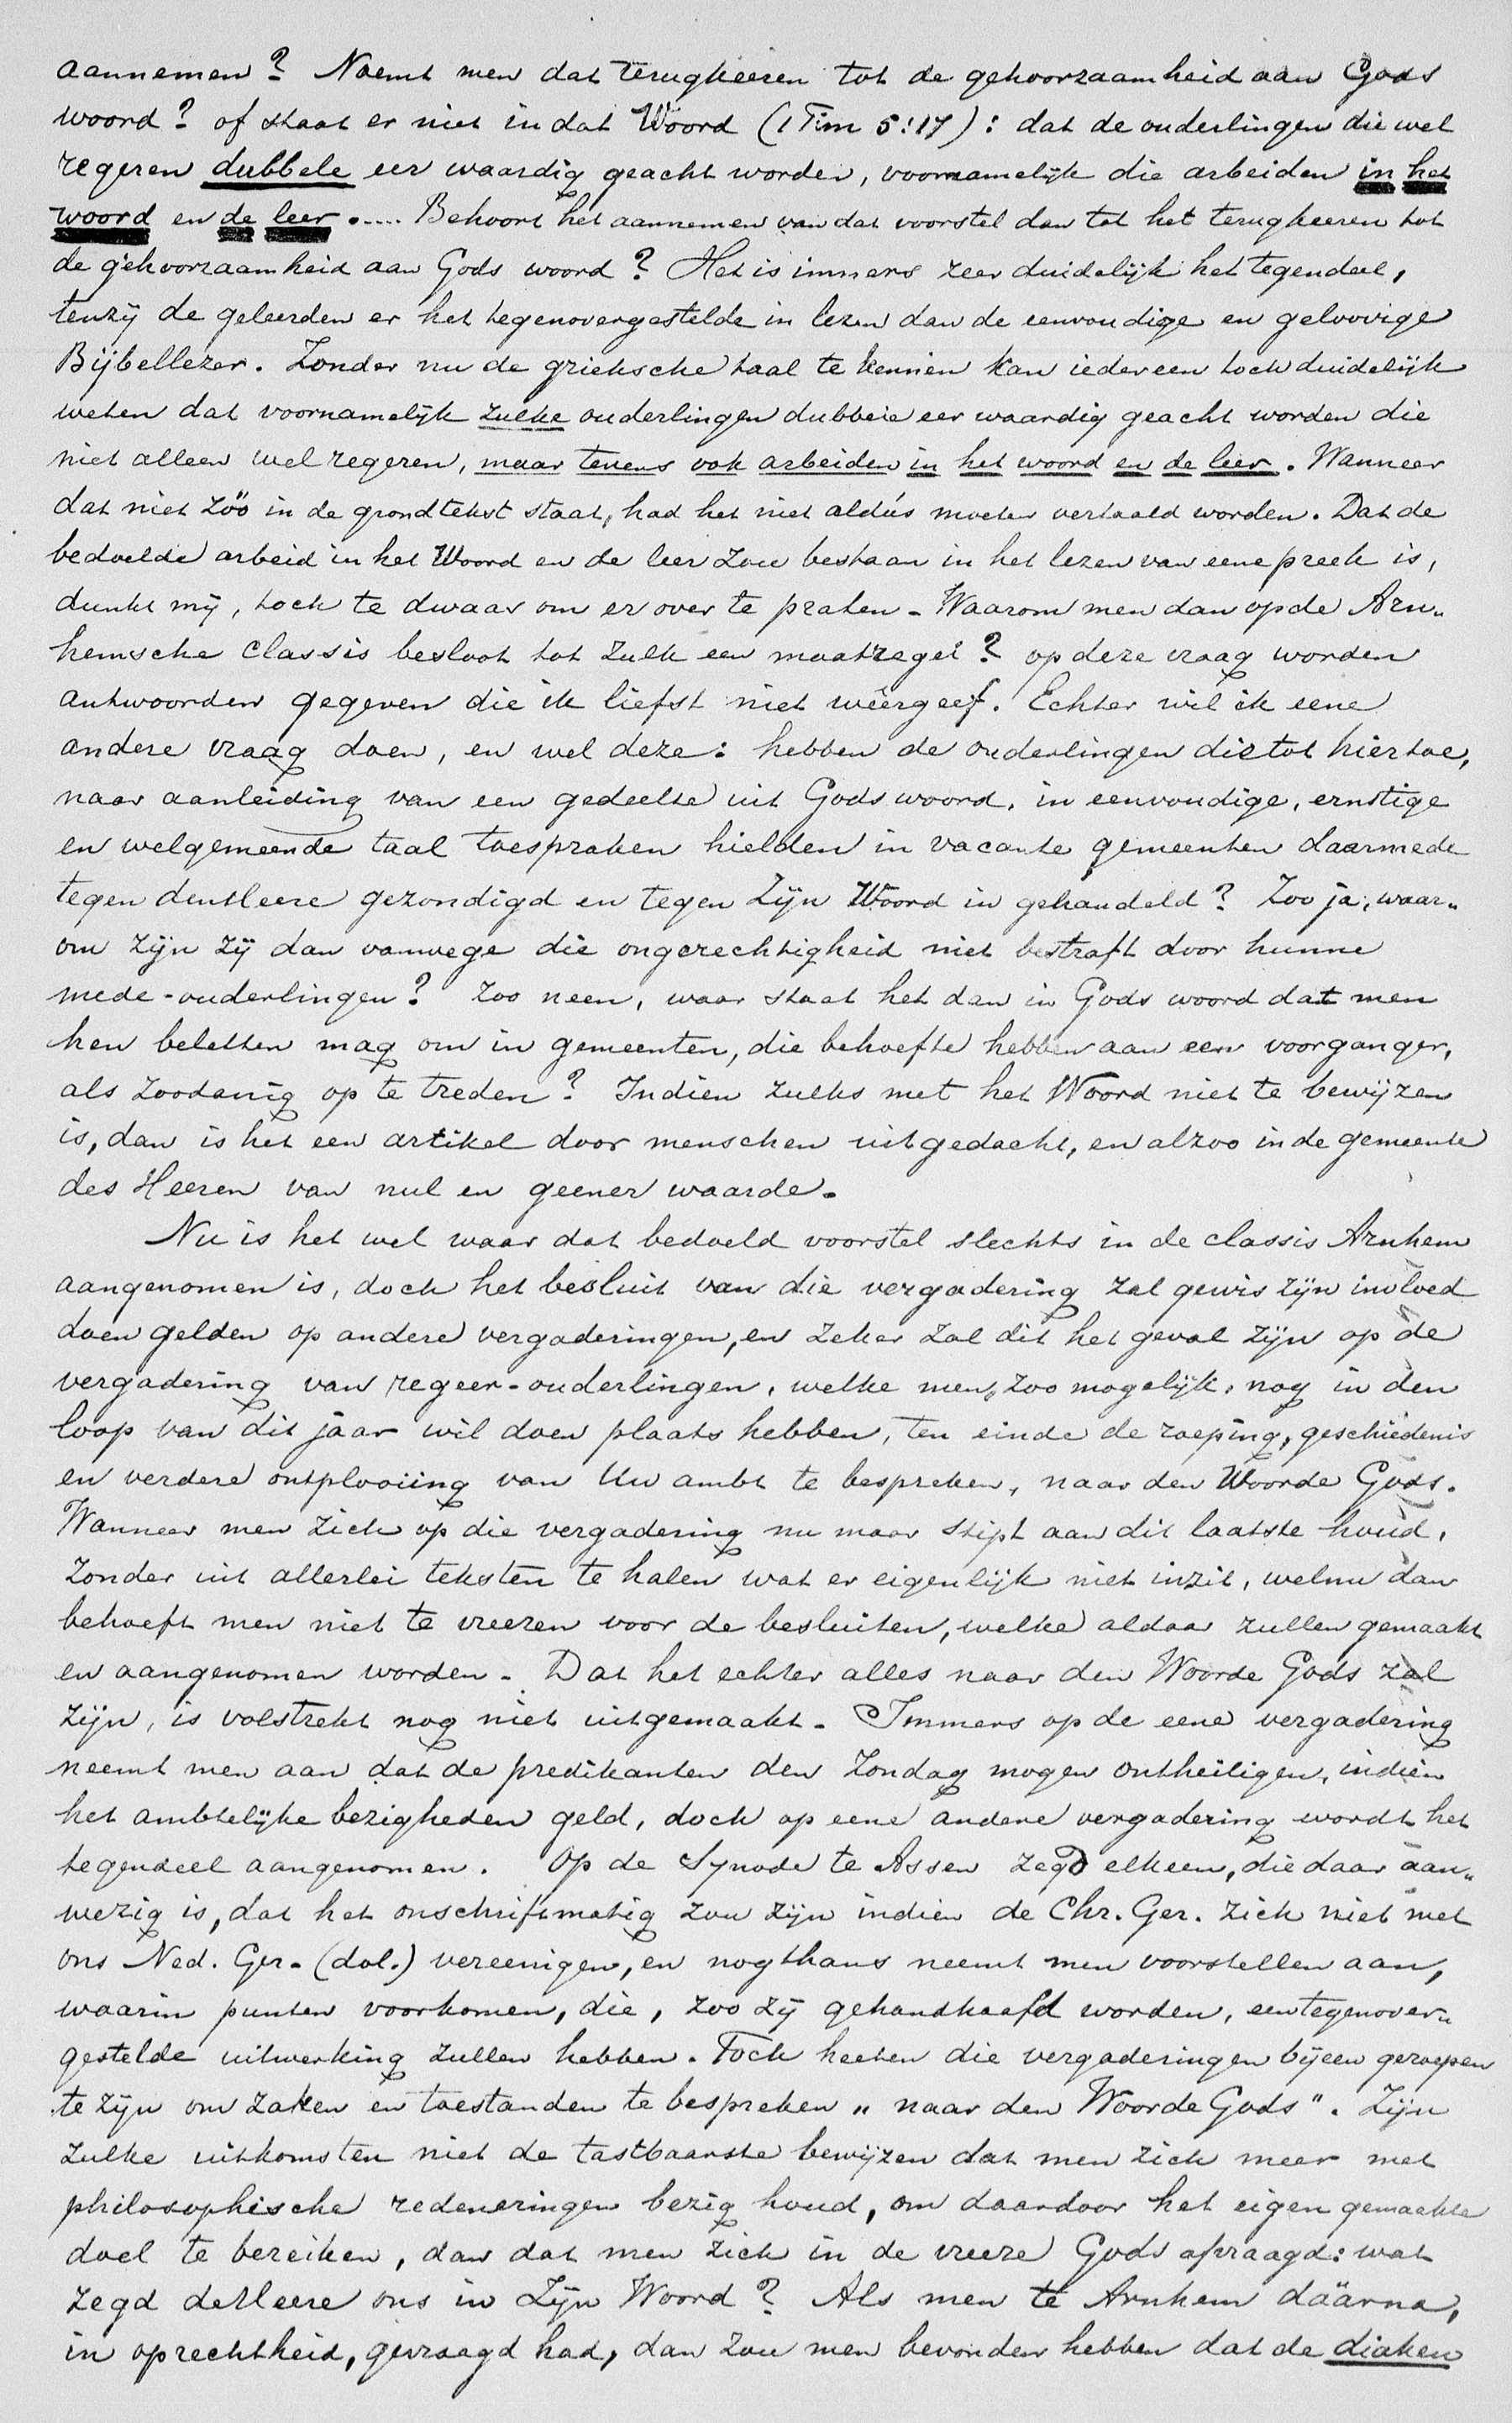 aannemen? Noemt men dat terugkeeren tot de gehoorzaamheid aan Gods
woord? of staat er niet in dat Woord (1 Tim 5:17): dat de ouderlingen die wel
regeren dubbele eer waardig geacht worden, voornamelijk die arbeiden in het
woord en de leer ..... Behoort het aannemen van dat voorstel dan tot het terugkeeren tot
de gehoorzaamheid aan Gods woord? Het is immers zeer duidelijk het tegendeel,
tenzij de geleerden er het tegenovergestelde in lezen dan de eenvoudige en geloovige
Bijbellezer. Zonder nu de grieksche taal te kennen kan iedereen toch duidelijk
weten dat voornamelijk zulke ouderlingen dubbele eer waardig geacht worden die
niet alleen wel regeren, maar tevens ook arbeiden in het woord en de leer. Wanneer
dat niet zóó in de grondtekst staat, had het niet aldús moeten vertaald worden. Dat de
bedoelde arbeid in het Woord en de leer zou bestaan in het lezen van eene preek is,
dunkt mij, toch te dwaas om er over te praten. Waarom men dan op de Arn„
hemsche classis besloot tot zulk een maatregel? op deze vraag worden
antwoorden gegeven die ik liefst niet wéérgeef. Echter wil ik eene
andere vraag doen, en wel deze: hebben de ouderlingen die tot hiertoe,
naar aanleiding van een gedeelte uit Gods woord, in eenvoudige, ernstige
en welgemeende taal toespraken hielden in vacante gemeenten daarmede
tegen den Heere gezondigd en tegen Zijn Woord in gehandeld? Zoo ja, waar„
om zijn zij dan vanwege die ongerechtigheid niet bestraft door hunne
mede-ouderlingen? Zoo neen, waar staat het dan in Gods woord dat men
hen beletten mag om in gemeenten, die behoefte hebben aan een voorganger,
als zoodanig op te treden? Indien zulks met het Woord niet te bewijzen
is, dan is het een artikel door menschen uitgedacht, en alzoo in de gemeente
des Heeren van nul en geener waarde.
Nu is het wel waar dat bedoeld voorstel slechts in de classis Arnhem
aangenomen is, doch het besluit van die vergadering zal gewis zijn invloed
doen gelden op andere vergaderingen, en zeker zal dit het geval zijn op de
vergadering van regeer-ouderlingen, welke men, zoo mogelijk, nog in den
loop van dit jaar wil doen plaats hebben, ten einde de roeping, geschiedenis
en verdere ontplooiing van Uw ambt te bespreken, naar den Woorde Gods.
Wanneer men zich op die vergadering nu maar stipt aan dit laatste houd,
zonder uit allerlei teksten te halen wat er eigenlijk niet inzit, welnu dan
behoeft men niet te vreezen voor de besluiten, welke aldaar zullen gemaakt
en aangenomen worden. Dat het echter alles naar den Woorde Gods zal
zijn, is volstrekt nog niet uitgemaakt. Immers op de eene vergadering
neemt men aan dat de predikanten den Zondag mogen ontheiligen, indien
het ambtelijke bezigheden geld, doch op eene andere vergadering wordt het
tegendeel aangenomen. Op de Synode te Assen zegd elkeen, die daar aan„
wezig is, dat het onschriftmatig zou zijn indien de Chr. Ger. zich niet met
ons Ned. Ger. (dol.) vereenigen, en nogthans neemt men voorstellen aan,
waarin punten voorkomen, die, zoo zij gehandhaafd worden, een tegenover„
gestelde uitwerking zullen hebben. Toch heeten die vergaderingen bijeen geroepen
te zijn om zaken en toestanden te bespreken „naar den Woorde Gods". Zijn
zulke uitkomsten niet de tastbaarste bewijzen dat men zich meer met
philosophische redeneringen bezig houd, om daardoor het eigen gemaakte
doel te bereiken, dan dat men zich in de vreeze Gods afvraagd: wat
zegd de Heere ons in Zijn Woord? Als men te Arnhem dáárna,
in oprechtheid, gevraagd had, dan zou men bevonden hebben dat de diaken